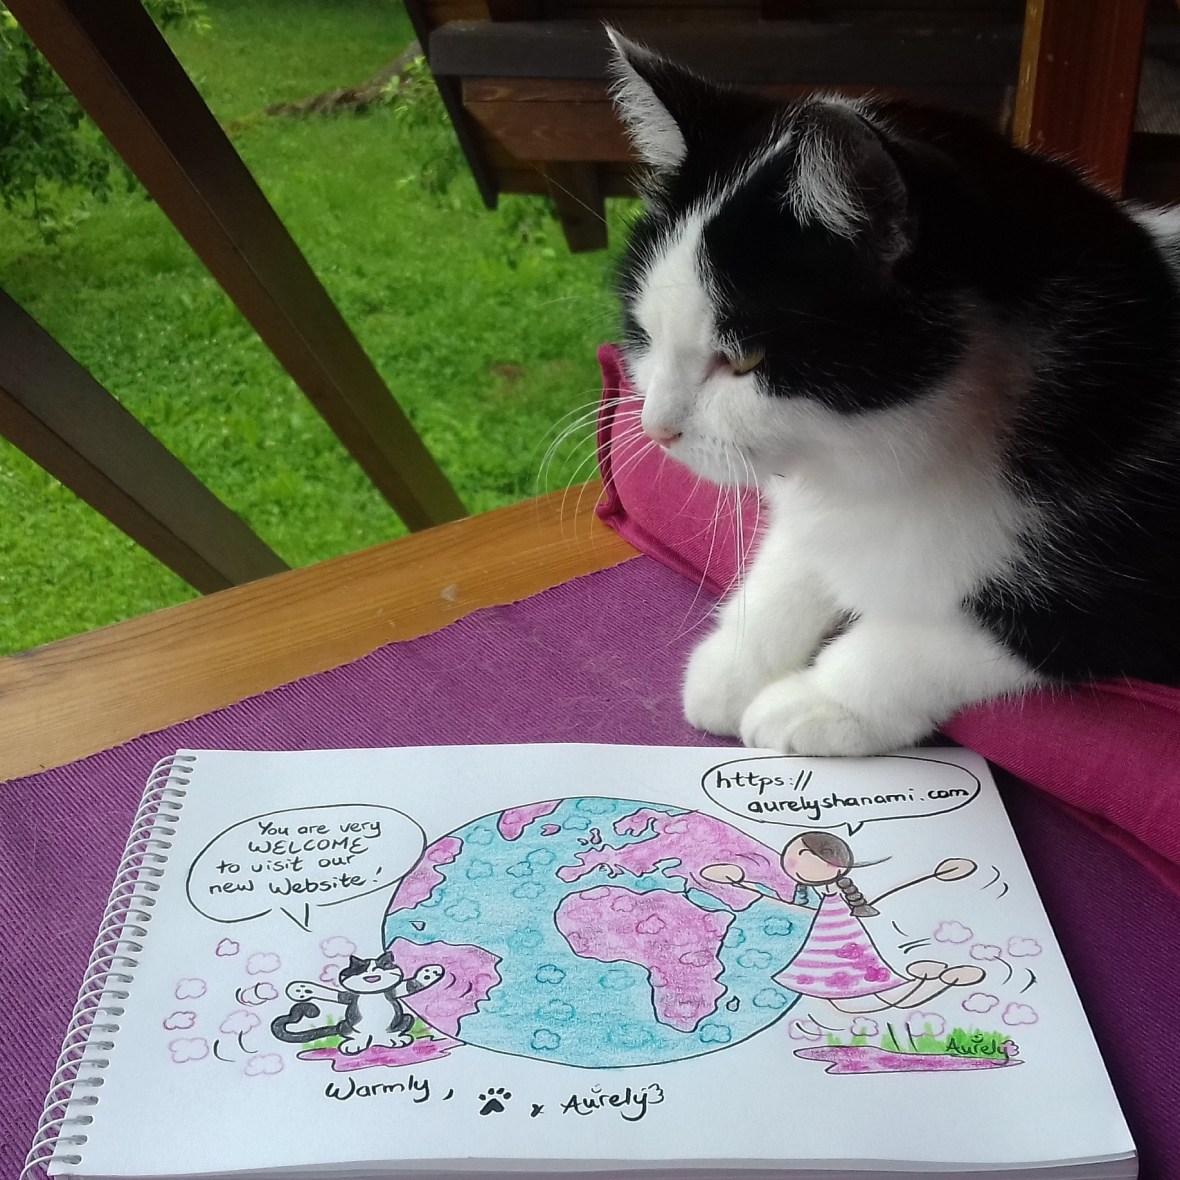 You are very
WELCOME
to visit our
new Website!
https://
aurelyshanami.com
Aurely
Warmly, & Aurely